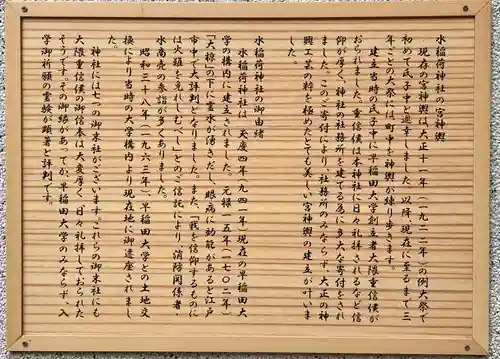 水稲荷神社の宮神輿
現在の宮神輿は大正十一年（一九二二年）の例大祭で
初めて氏子中を巡幸しました。以降、現在に至るまで三
年ごとの大祭には町中を神輿が練り歩きます。
建立当時の氏子中に早稲田大学創立者大隈重信侯が
おられました。重信侯は本神社に日々礼拝されるなど信
仰が厚く、神社の社務所を建てる為に多大な寄付をされ
ました。このご寄付により社務所のみならず、大正の神
興工業の粋を極めたとても美しい宮神輿の建立が叶いま
した。
水稲荷神社の御由緒
水稲荷神社は 天慶四年（九四一年）現在の早稲田大
学の構内に建立されました。元禄一五年（一七〇二年）
「大椋」の下に霊水が湧きだし、眼病に効能があると江戸
市中で大評判となりました。また、「我を信仰するものに
は火難を免れしむべし」とのご信託により、消防関係者、
水商売の参詣が多くありました。
昭和三十八年（一九六三年）、早稲田大学との土地交
換により当時の大学構内より現在地に御遷座されまし
た。
神社には七つの御末社がございます。これらの御末社にも
大隈重信侯の御信奉は大変厚く、日々礼拝しておられた
そうです。その御縁があってか、早稲田大学のみならず、入
学御祈願の霊験が顕著と評判です。